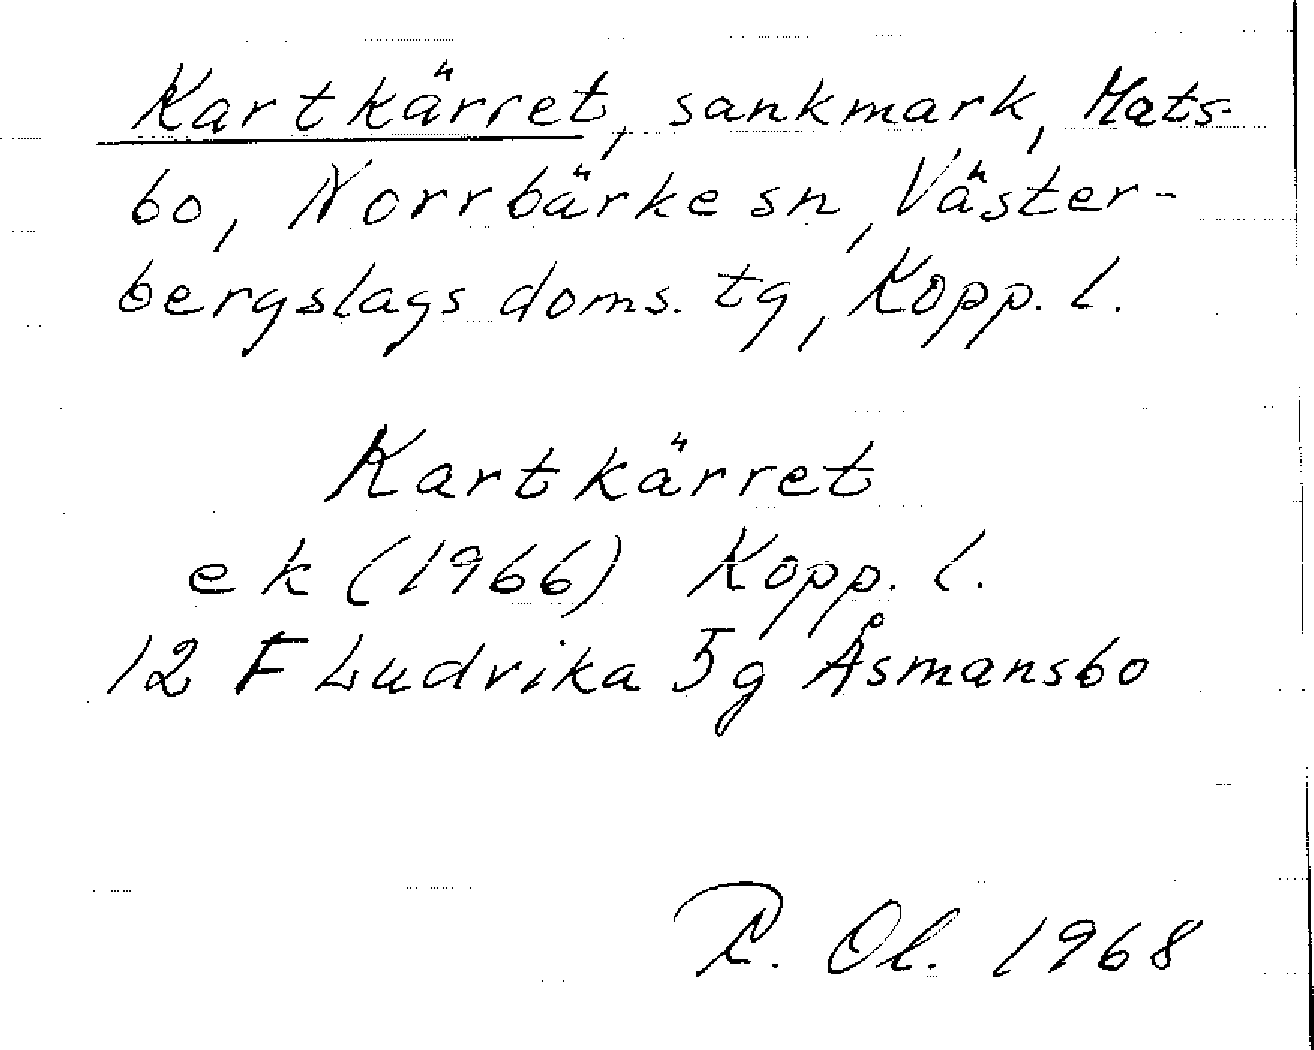 Kartkärret, sankmark, Mats-
bo, Norrbärke sn, Väster-
bergslags doms. tg, Kopp. l.
Kartkärret
ek (1966) Kopp. l.
12 F Ludvika 5g Åsmansbo
R. Ol. 1968